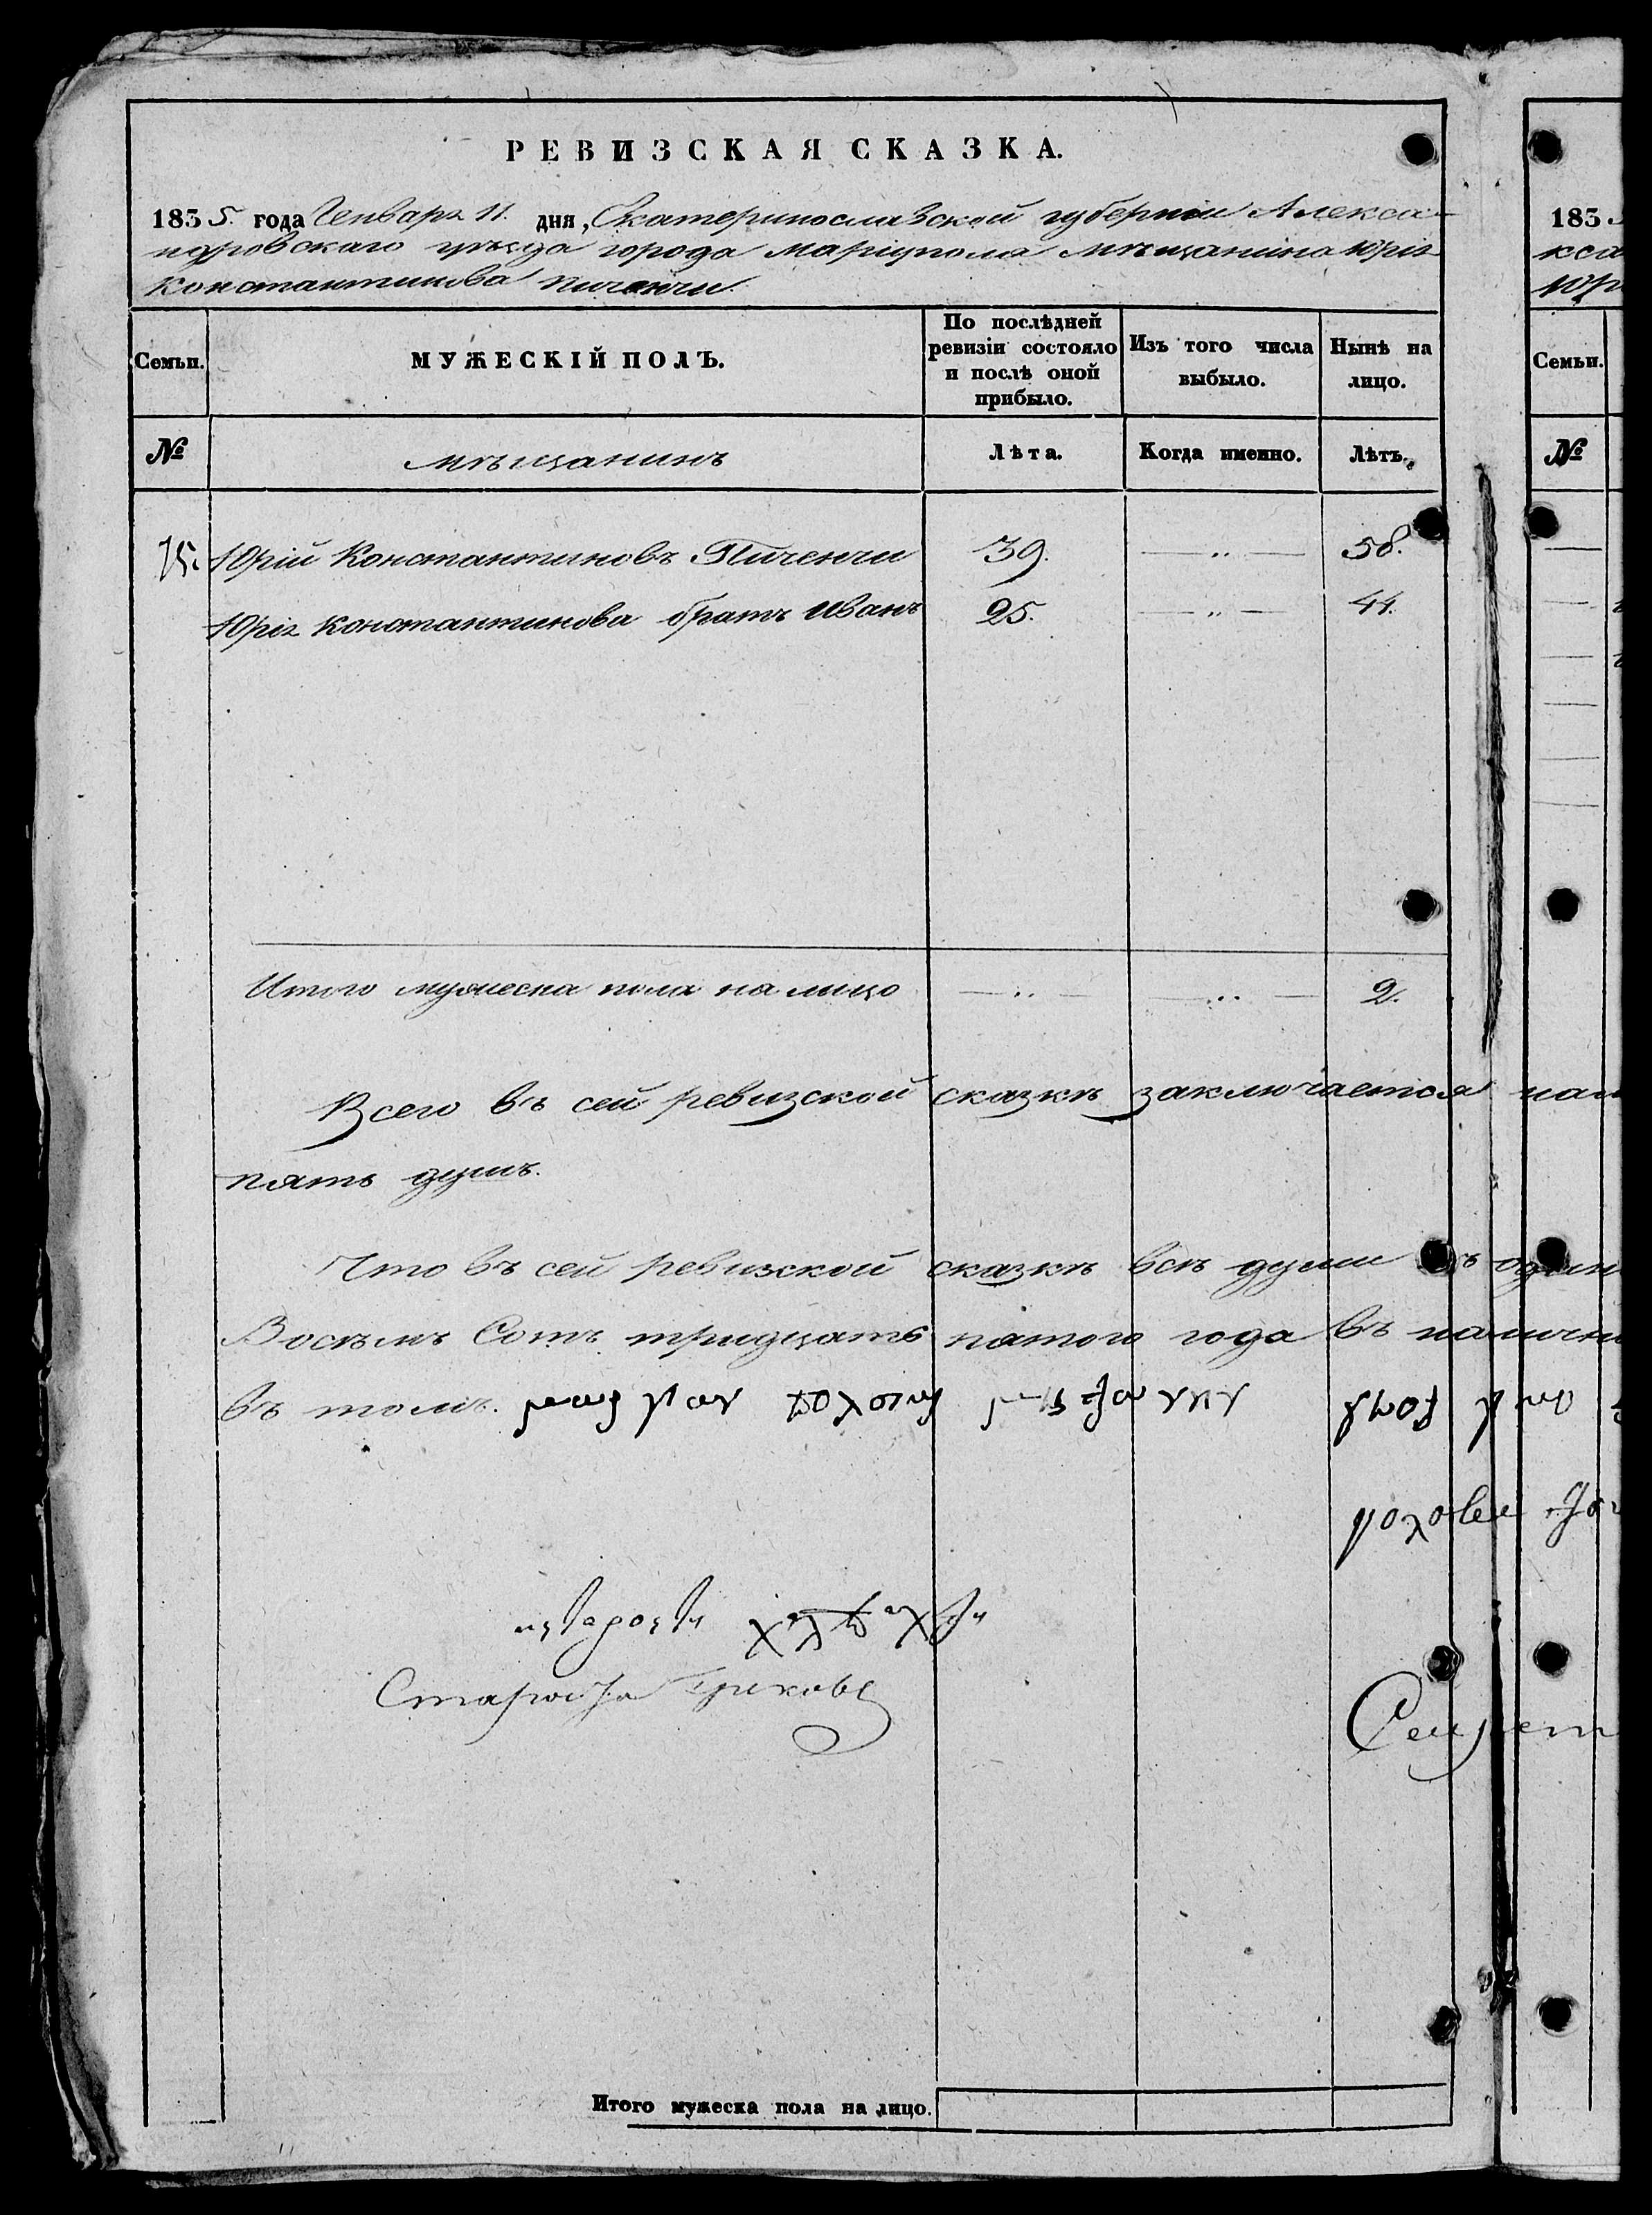 РЕВИЗСКАЯ СКАЗКА.
1835. года Генваря 11. дня, Екатеринославской губернии Алекса-
ндровскаго уѣзда города Маріуполя мѣщанина Юрія
Константинова Пиченчи.
Семьи.
МУЖЕСКІЙ ПОЛЪ.
По послѣдней ревизіи состояло и послѣ оной прибыло.
Изъ того числа выбыло.
Нынѣ на лицо.
№
мѣщанинъ
Лѣта.
Когда именно.
Лѣтъ.
75. Юрій Константиновъ Пиченчи 39. — „ — 58.
Юрія Константинова братъ Иванъ 25. — „ — 44.
Итого мужеска пола на лицо — „ — — „ — 2.
Всего въ сей ревизской сказкѣ заключается
пять душъ.
Что въ сей ревизской сказкѣ всѣ души
Восѣмъ Сотъ тридцать пятого года въ
въ томъ.
Староста Грековъ
Итого мужеска пола на лицо.
183
Семьи.
№